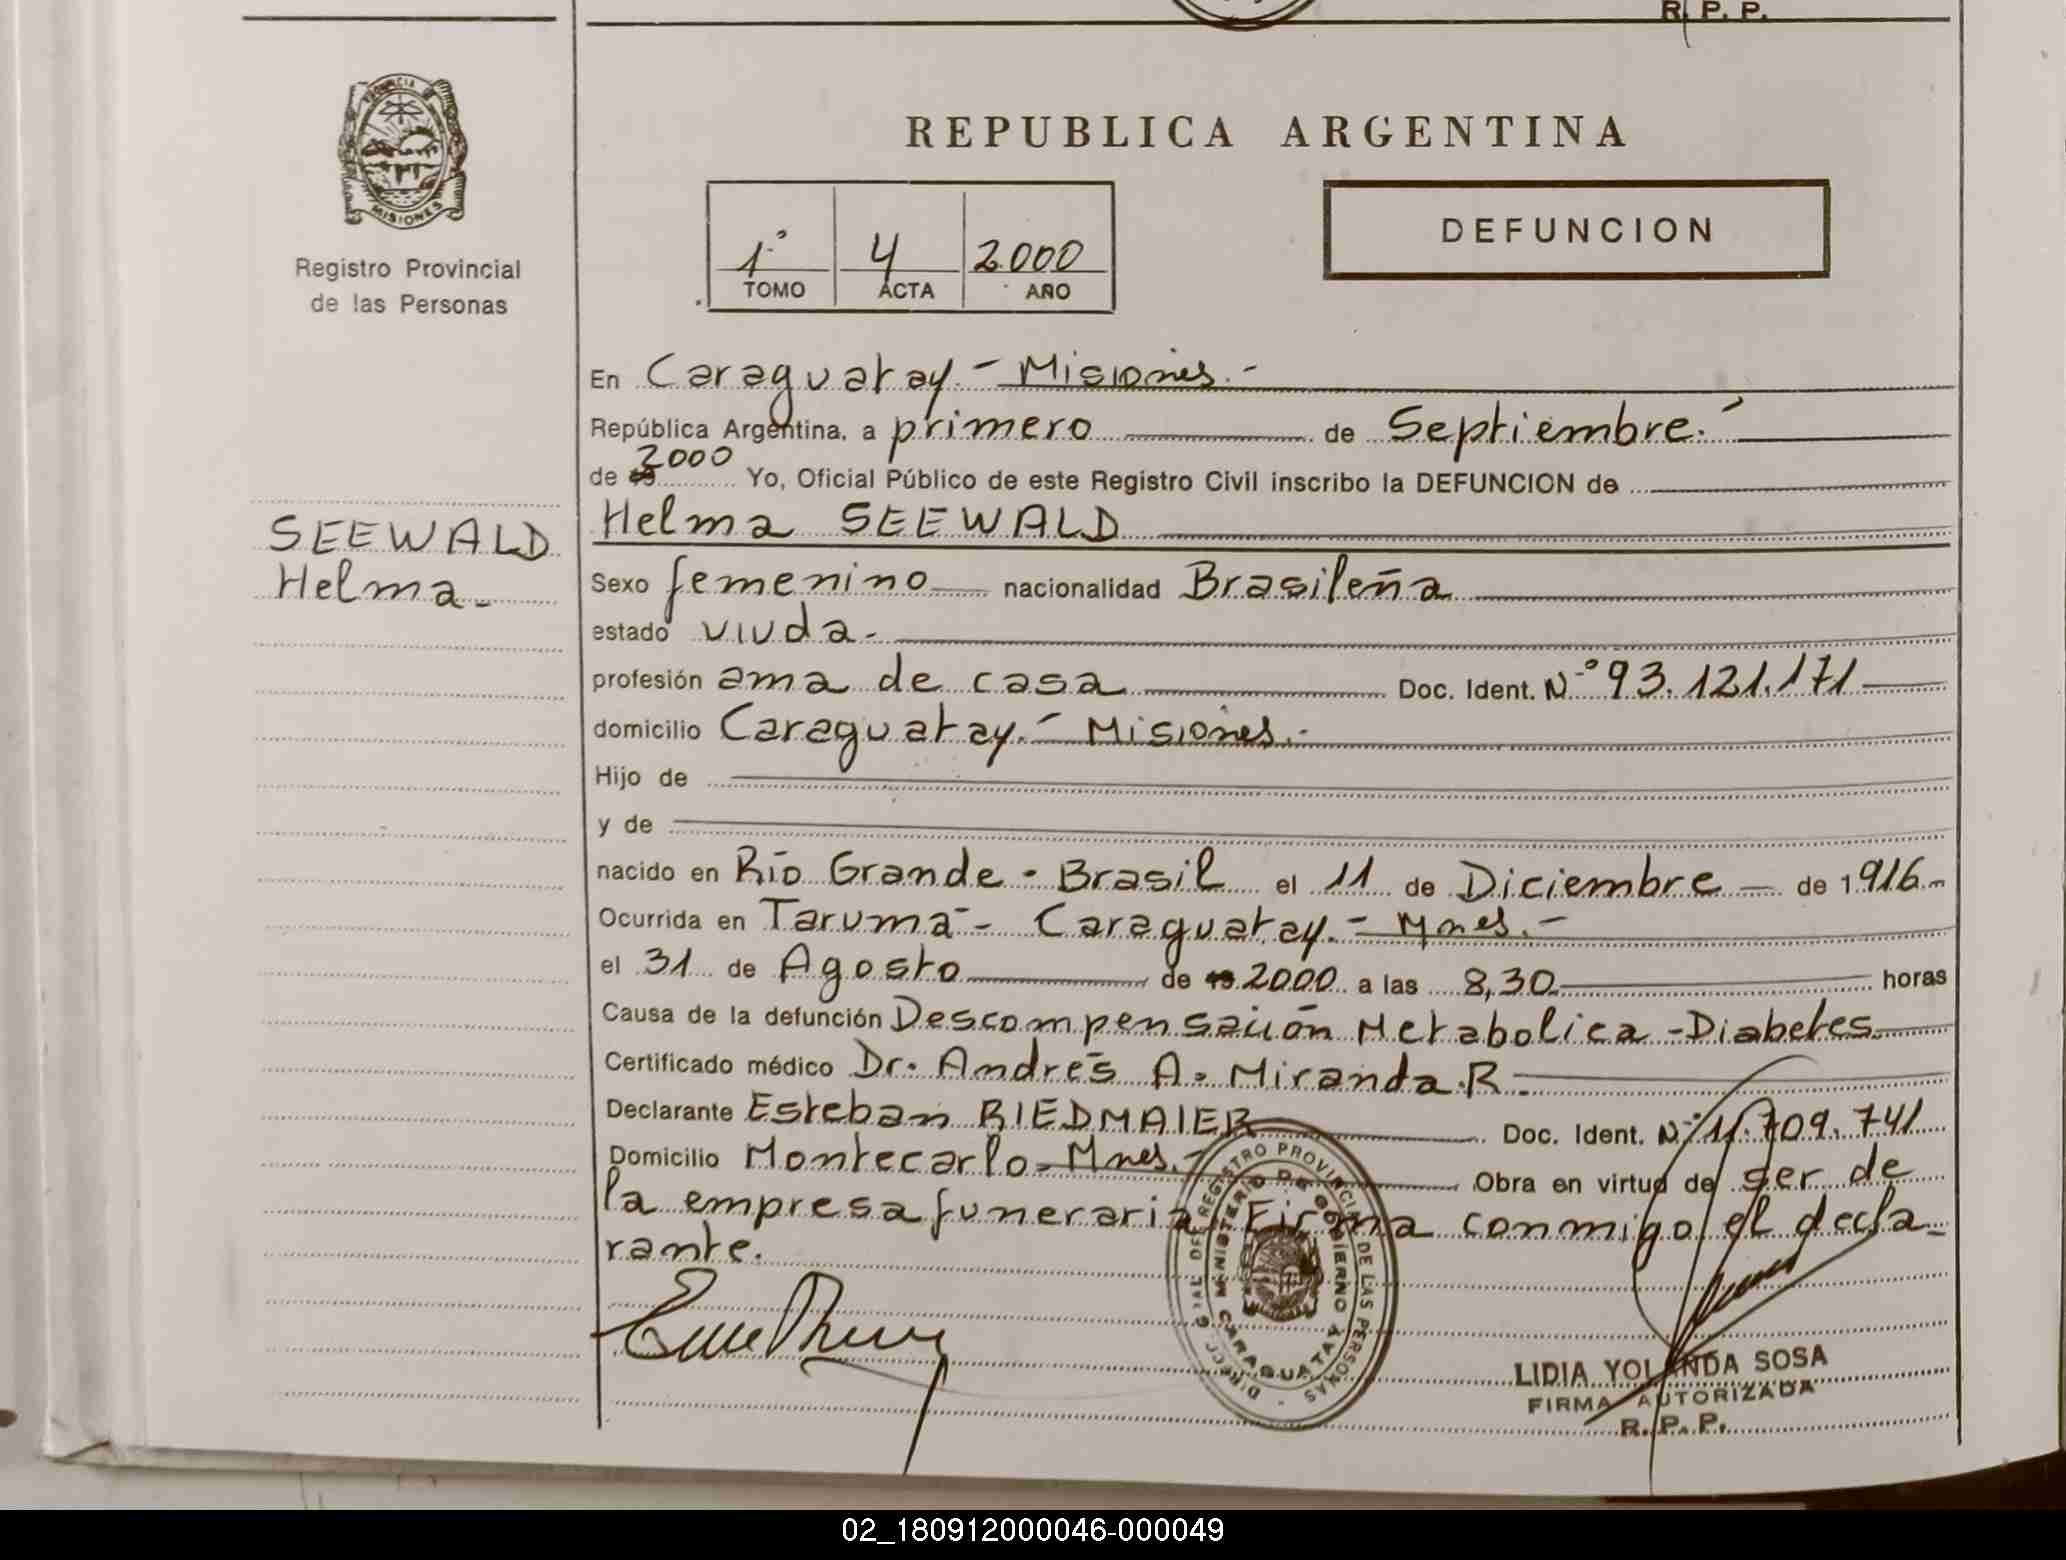 R. P. P.
PROVINCIA
MISIONES
Registro Provincial
de las Personas
SEEWALD
Helma.-
REPUBLICA ARGENTINA
1° 4 2.000
TOMO ACTA AÑO
DEFUNCION
En Caraguatay.- Misiones.-
República Argentina, a primero de Septiembre.-
de 19 2000 Yo, Oficial Público de este Registro Civil inscribo la DEFUNCION de
Helma SEEWALD
Sexo femenino nacionalidad Brasileña
estado viuda.-
profesión ama de casa Doc. Ident. N° 93.121.171
domicilio Caraguatay.- Misiones.-
Hijo de
y de
nacido en Río Grande - Brasil el 11 de Diciembre - de 1916.-
Ocurrida en Tarumá - Caraguatay.- Mnes.-
el 31 de Agosto de 19 2000 a las 8,30 horas
Causa de la defunción Descompensación Metabolica - Diabetes.
Certificado médico Dr. Andrés A. Miranda.R.
Declarante Esteban RIEDMAIER Doc. Ident. N° 11.709.741
Domicilio Montecarlo - Mnes.- Obra en virtud de ser de
la empresa funeraria. Firma conmigo el decla-
rante.
DIRECC. GRAL. DE REGISTRO PROVINCIAL DE LAS PERSONAS
MINISTERIO DE GOBIERNO
CARAGUATAY
LIDIA YOLANDA SOSA
FIRMA AUTORIZADA
R. P. P.
02_180912000046-000049